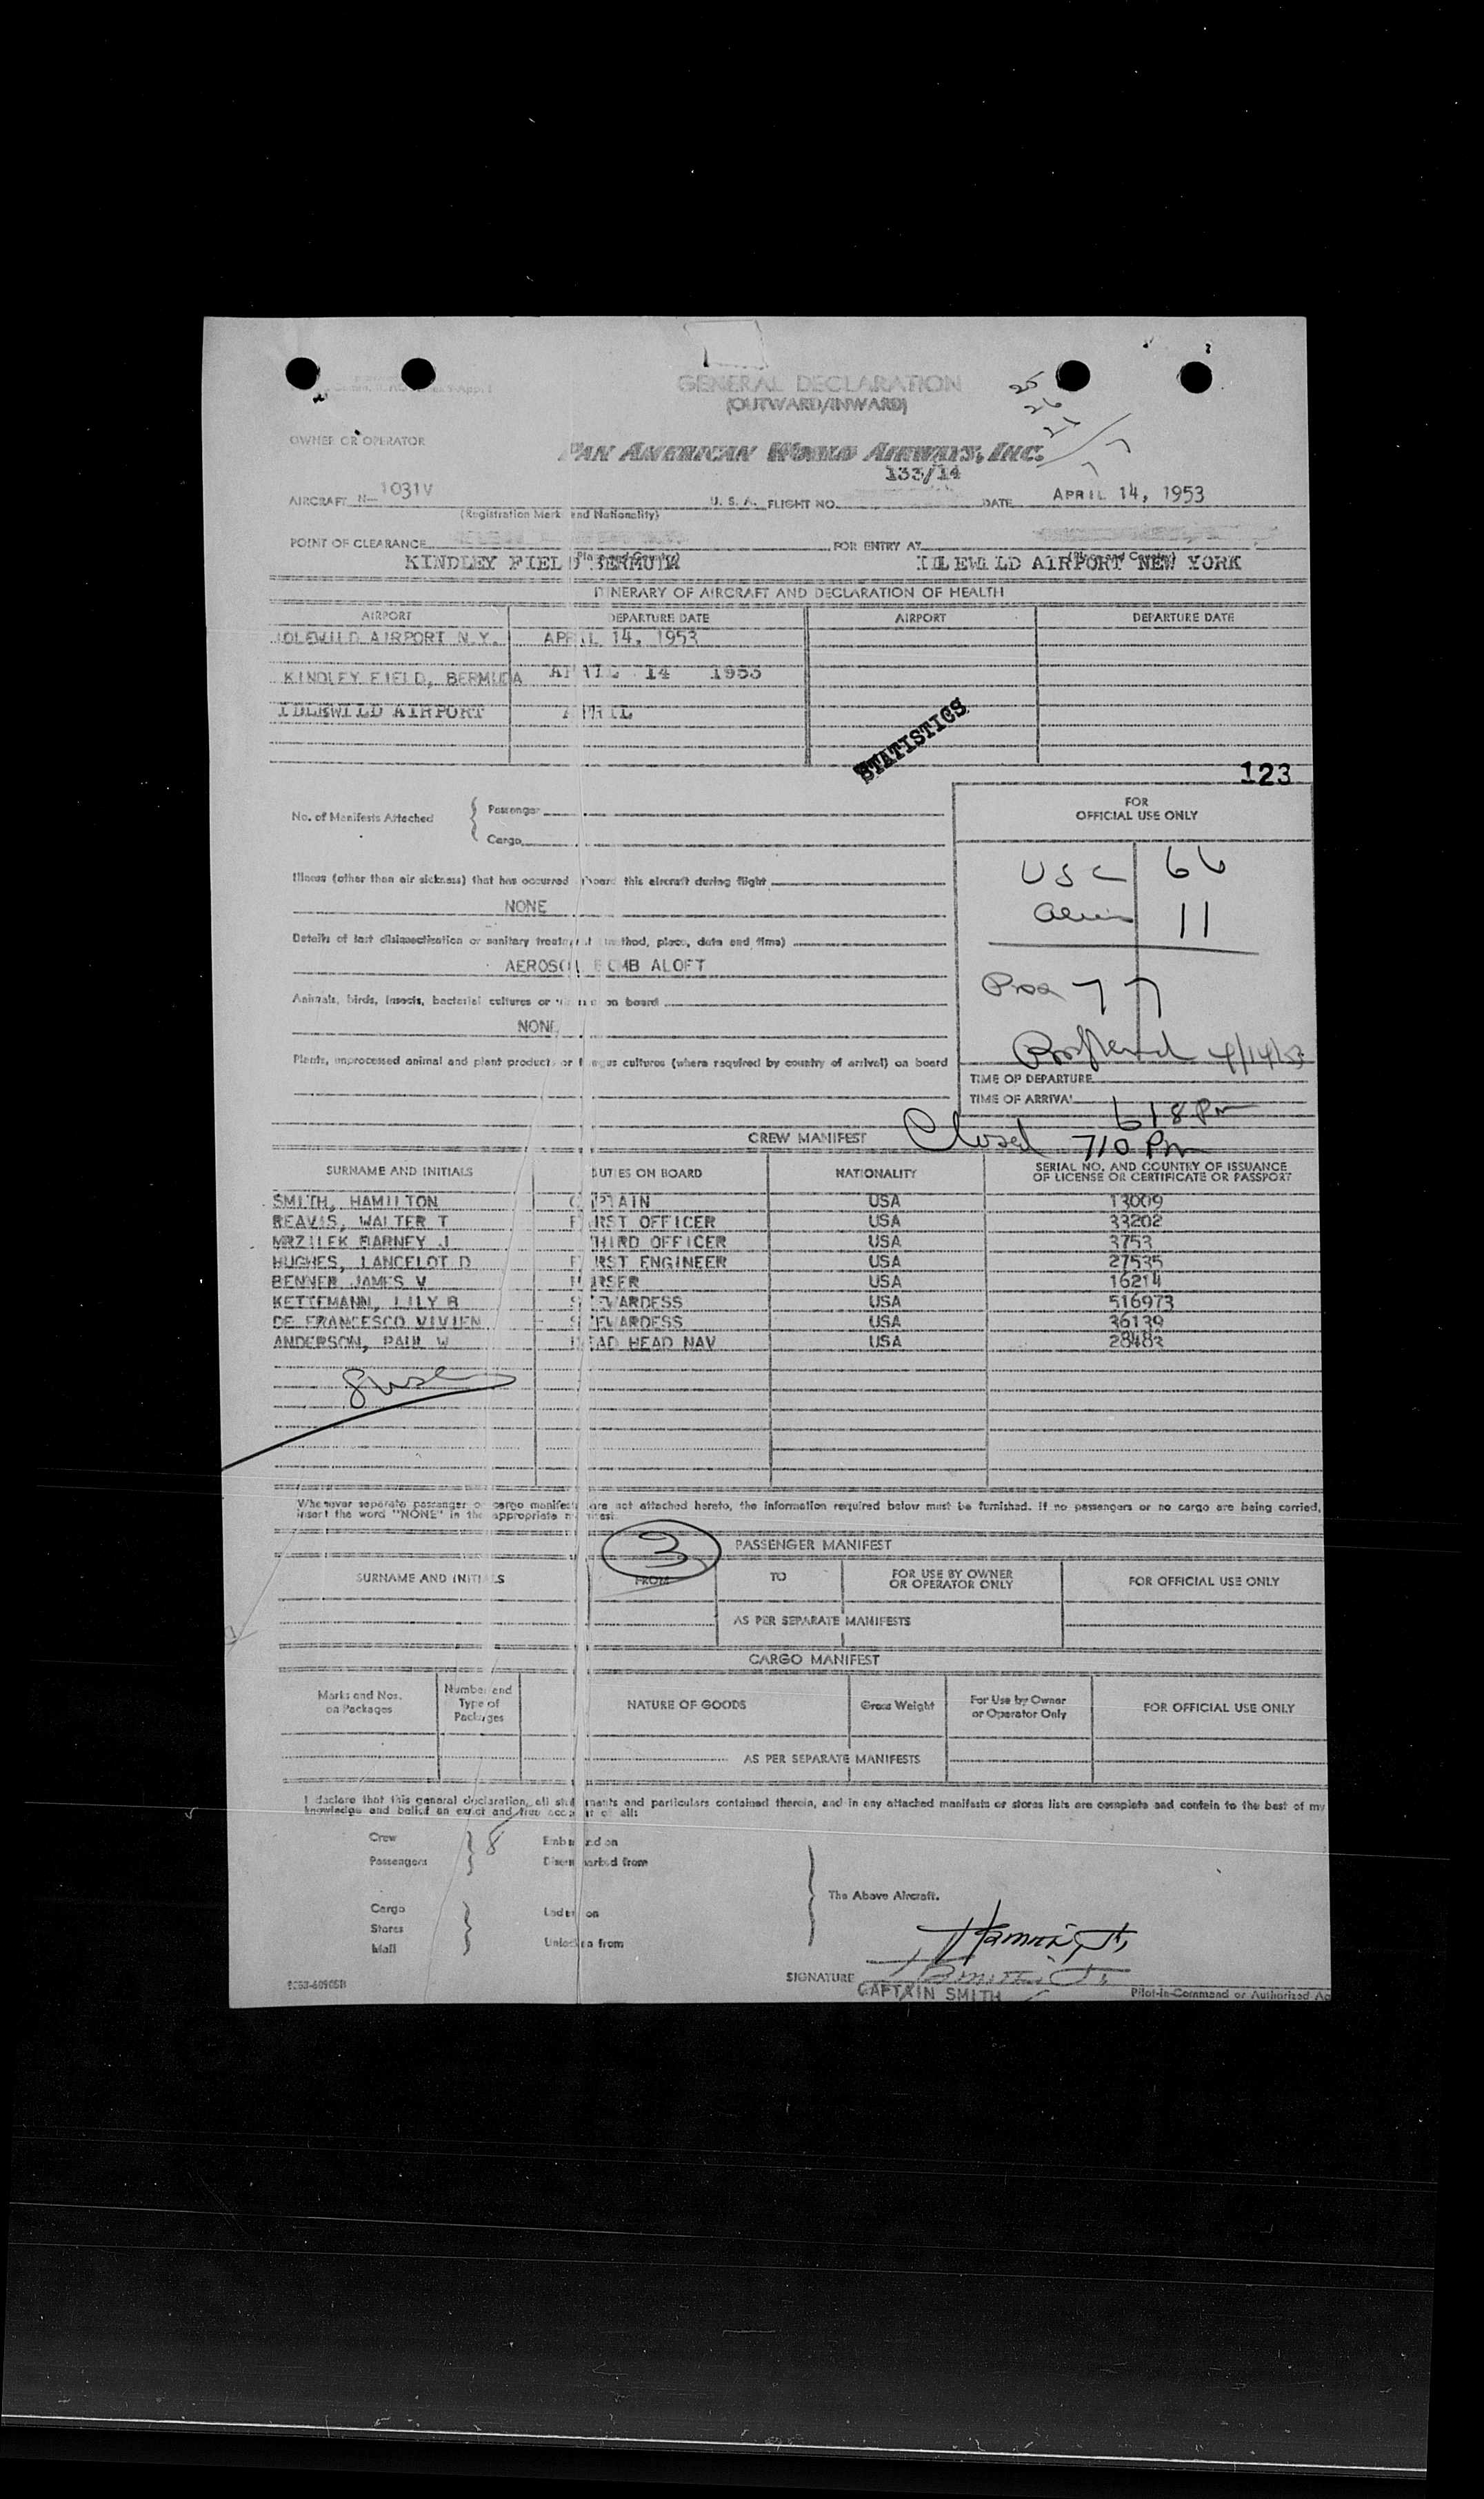 GENERAL DECLARATION
(OUTWARD/INWARD)
25
26
OWNER OR OPERATOR
PAN AMERICAN WORLD AIRWAYS, INC.
133/14
AIRCRAFT N- 1031V U. S. A. FLIGHT NO. DATE APRIL 14, 1953
(Registration Mark and Nationality)
POINT OF CLEARANCE FOR ENTRY AT
(Place and Country) (Place and Country)
KINDLEY FIELD BERMUDA IDLEWILD AIRPORT NEW YORK
ITINERARY OF AIRCRAFT AND DECLARATION OF HEALTH
AIRPORT DEPARTURE DATE AIRPORT DEPARTURE DATE
IDLEWILD AIRPORT N.Y. APRIL 14, 1953
KINDLEY FIELD, BERMUDA APRIL 14 1953
IDLEWILD AIRPORT APRIL
STATISTICS
123
No. of Manifests Attached { Passenger
Cargo
FOR
OFFICIAL USE ONLY
USC 66
Alien 11
77
4/14/53
Illness (other than air sickness) that has occurred aboard this aircraft during flight
NONE
Details of last disinsectization or sanitary treatment (method, place, date and time)
AEROSOL BOMB ALOFT
Animals, birds, insects, bacterial cultures or virus on board
NONE
Plants, unprocessed animal and plant products or fungus cultures (where required by country of arrival) on board
TIME OF DEPARTURE
TIME OF ARRIVAL 618 Pm
Closed 710 Pm
CREW MANIFEST
SURNAME AND INITIALS DUTIES ON BOARD NATIONALITY SERIAL NO. AND COUNTRY OF ISSUANCE OF LICENSE OR CERTIFICATE OR PASSPORT
SMITH, HAMILTON CAPTAIN USA 13009
REAVIS, WALTER T FIRST OFFICER USA 33202
MRZILEK BARNEY J THIRD OFFICER USA 3753
HUGHES, LANCELOT D FIRST ENGINEER USA 27535
BENNER JAMES V PURSER USA 16214
KETTEMANN, LILY B STEWARDESS USA 516973
DE FRANCESCO VIVIEN STEWARDESS USA 36139
ANDERSON, PAUL W DEAD HEAD NAV USA 28483
Whenever separate passenger or cargo manifests are not attached hereto, the information required below must be furnished. If no passengers or no cargo are being carried,
insert the word "NONE" in the appropriate manifest.
3
PASSENGER MANIFEST
SURNAME AND INITIALS FROM TO FOR USE BY OWNER OR OPERATOR ONLY FOR OFFICIAL USE ONLY
AS PER SEPARATE MANIFESTS
CARGO MANIFEST
Marks and Nos. on Packages Number and Type of Packages NATURE OF GOODS Gross Weight For Use by Owner or Operator Only FOR OFFICIAL USE ONLY
AS PER SEPARATE MANIFESTS
I declare that this general declaration, all statements and particulars contained therein, and in any attached manifests or stores lists are complete and contain to the best of my
knowledge and belief an exact and true account of all:
Crew 8 Embarked on
Passengers Disembarked from
The Above Aircraft.
Cargo Laden on
Stores
Mail Unladen from
SIGNATURE
CAPTAIN SMITH
Pilot-in-Command or Authorized Ag